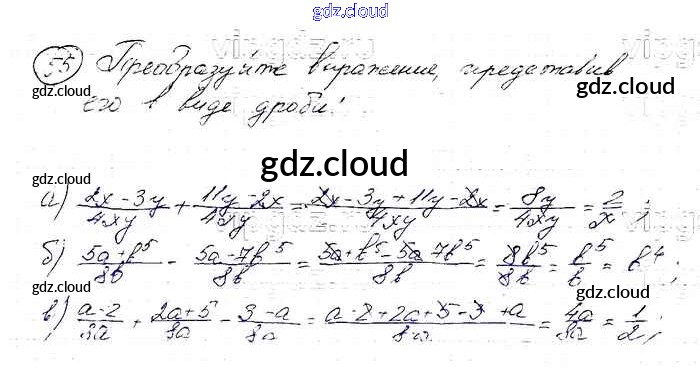 gdz.cloud
55 Преобразуйте выражение, представив
его в виде дроби:
gdz.cloud
gdz.cloud
gdz.cloud
а) (2x - 3y)/(4xy) + (11y - 2x)/(4xy) = (2x - 3y + 11y - 2x)/(4xy) = 8y/(4xy) = 2/x ;
б) (5a + b⁵)/(8b) - (5a - 7b⁵)/(8b) = (5a + b⁵ - 5a 7b⁵)/(8b) = 8b⁵/(8b) = b⁵/b = b⁴ ;
gdz.cloud
gdz.cloud
в) (a - 2)/(8a) + (2a + 5)/(8a) - (3 - a)/(8a) = (a - 2 + 2a + 5 - 3 + a)/(8a) = 4a/(8a) = 1/2 ;
gdz.cloud
gdz.cloud